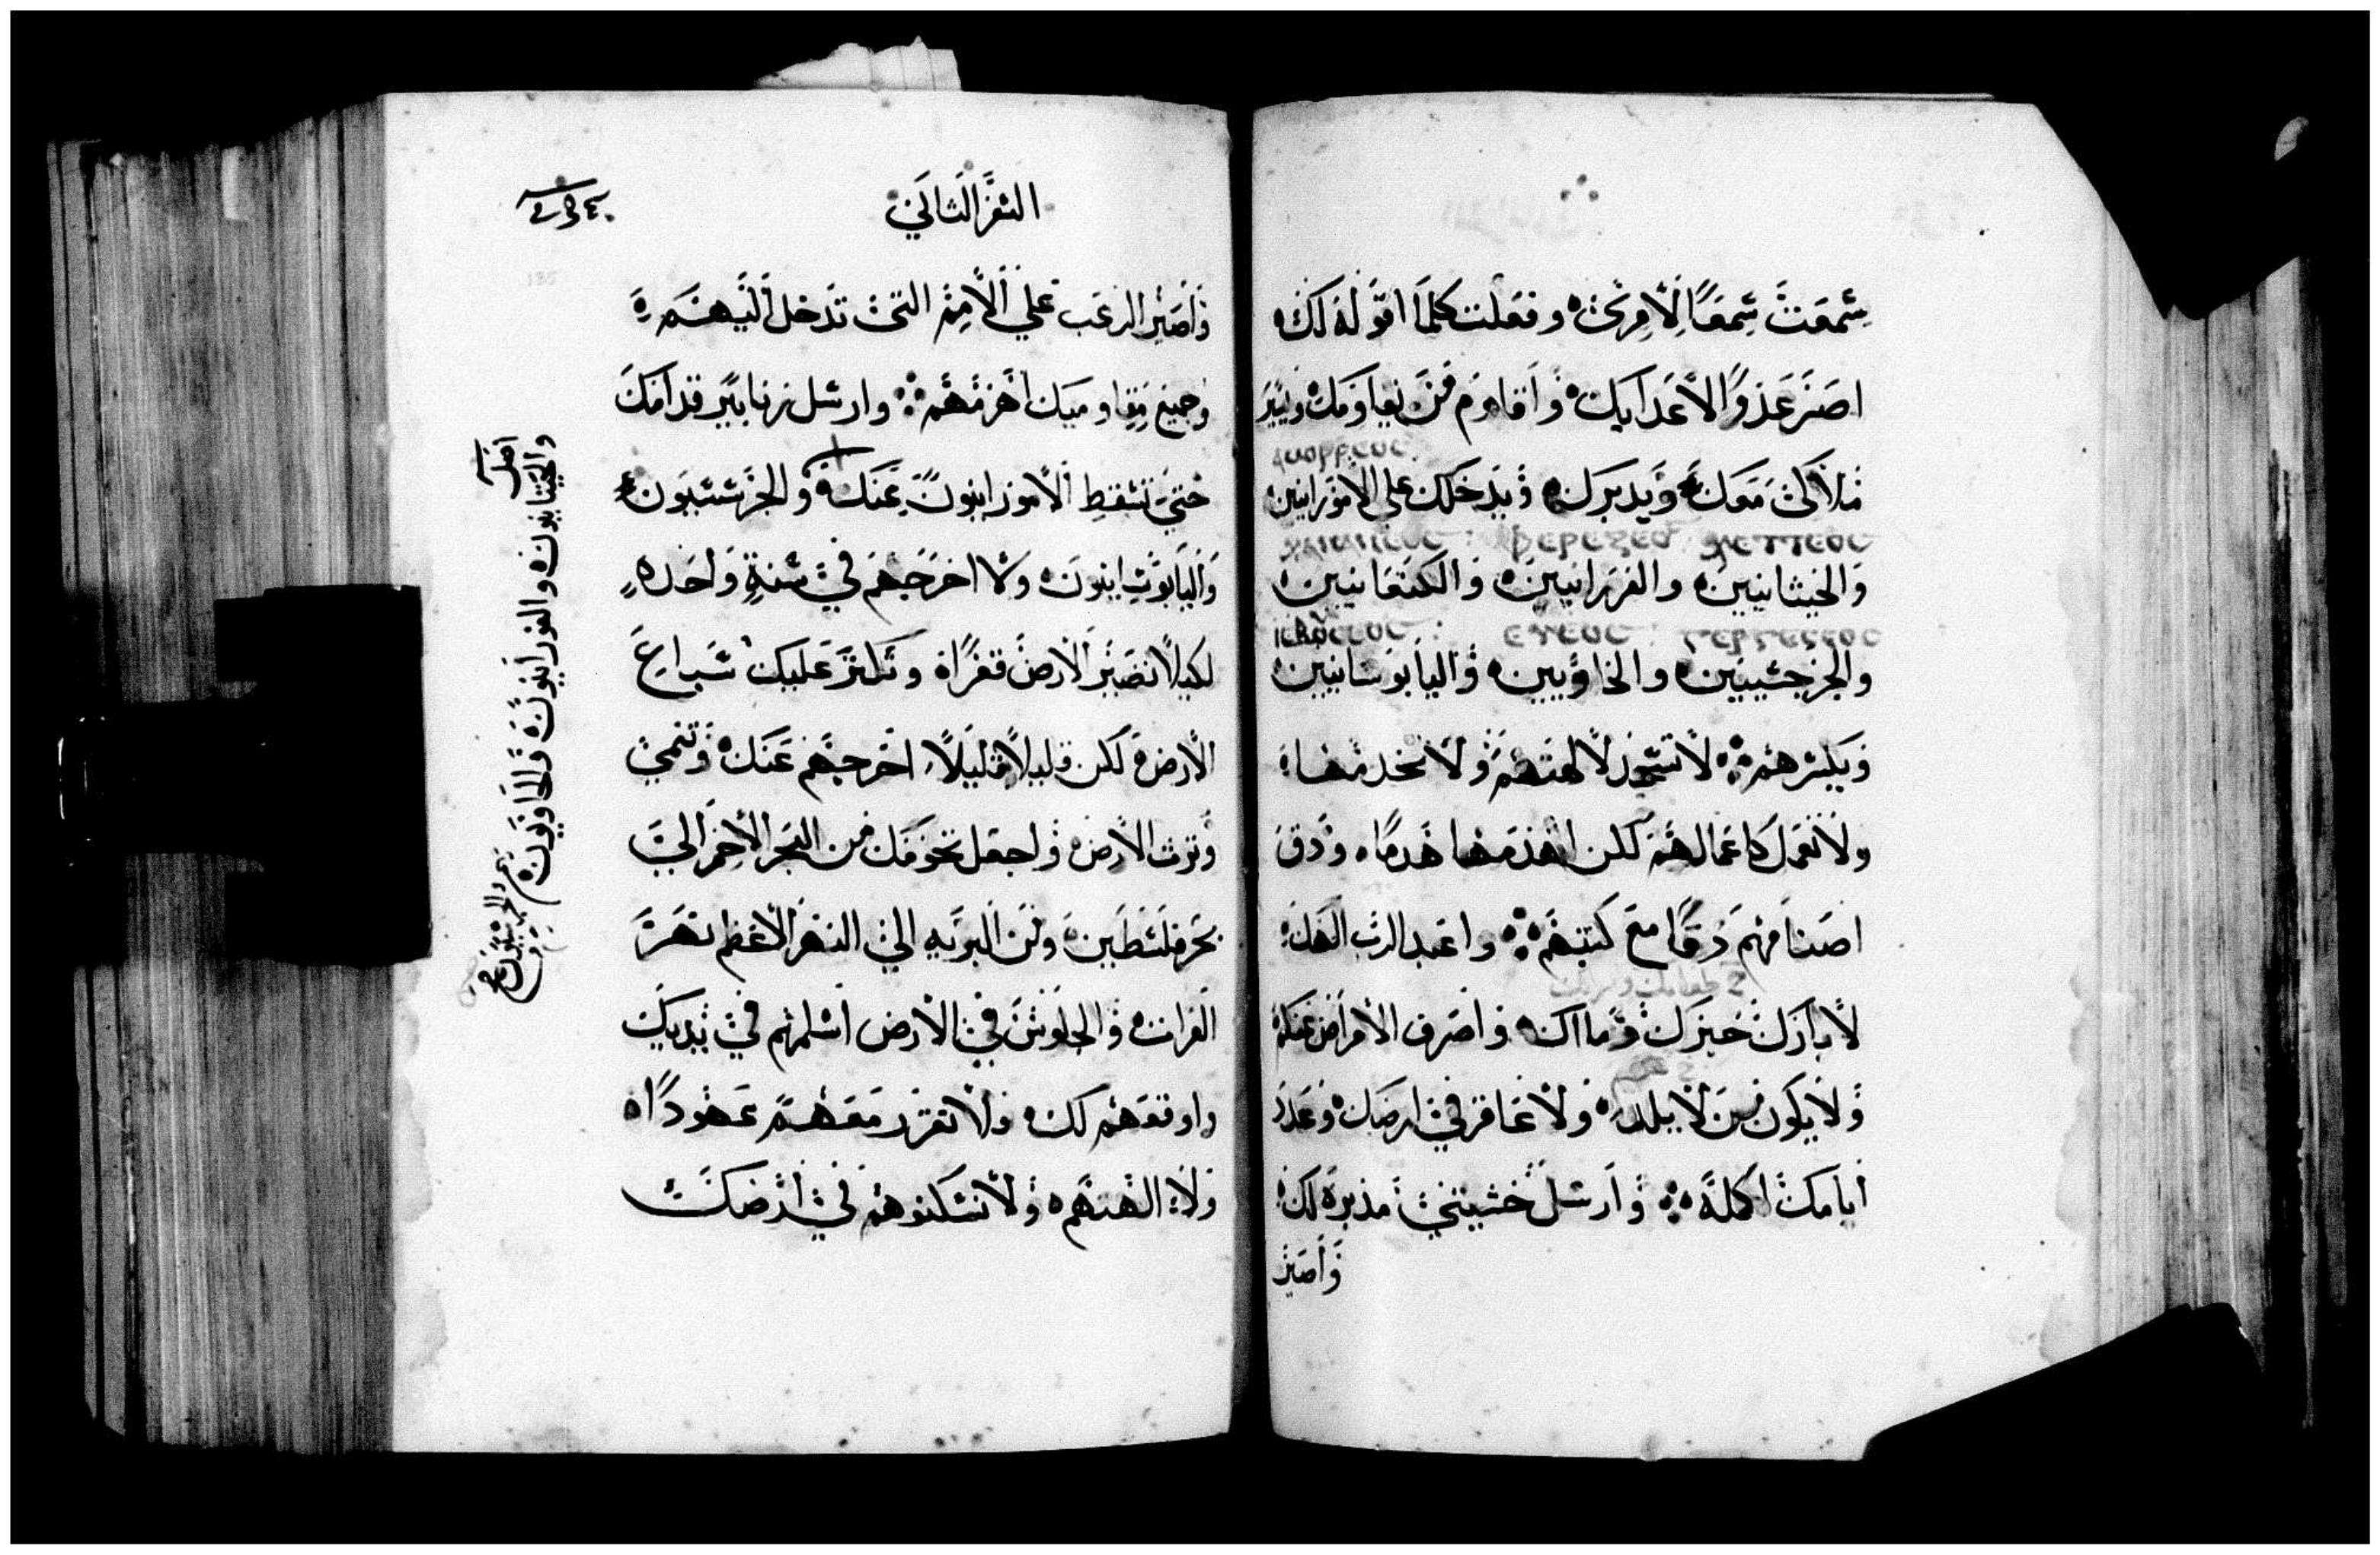 سمعت سمعًا لامري وفعلت كلما اقوله لك
اصير عدوًا لاعدايك واقاوم من يقاومك ويسير
ملاكي معك ويدبرك ويدخلك على الامورانيين
والخيثانيين والفرزانيين والكنعانيين
والجرجسيين والحاويين واليابوسانيين
ويكسرهم لا تسجد لالهتهم ولا تخدمها
ولا تعمل كاعمالهم لكن اهدمها هدمًا ودق
اصنامهم دقًا مع كتبهم واعبد الرب الهك
لابارك خبزك وماك واصرف الامراض عنكم
ولا يكون من لا يلد ولا عاقر في ارضك وعدد
ايامك اكمله وارسل خشيتي مدبره لك
واصير
السفر الثاني
واصير الرعب على الامم التي تدخل اليهم
وجميع مقاوميك اهزمهم وارسل زنابير قدامك
حتي تسقط الامورانيون عنك والجرسسيون
واليابوثانيون ولا اخرجهم في سنة واحده
لكيلا تصير الارض قفرًا وتكثر عليك سباع
الارض لكن قليلًا قليلًا اخرجهم عنك وتنمي
وترث الارض واجعل تخومك من البحر الاحمر الي
بحر فلسطين ومن البريه الي النهر الاعظم نهر
الفرات والجلوس في الارض اسلمهم في يديك
واوقعهم لك ولا تقرر معهم عهودًا
ولا الهتهم ولا تسكنوهم في ارضك
اصل
والحيتانيون والفرزانيون والحاويون